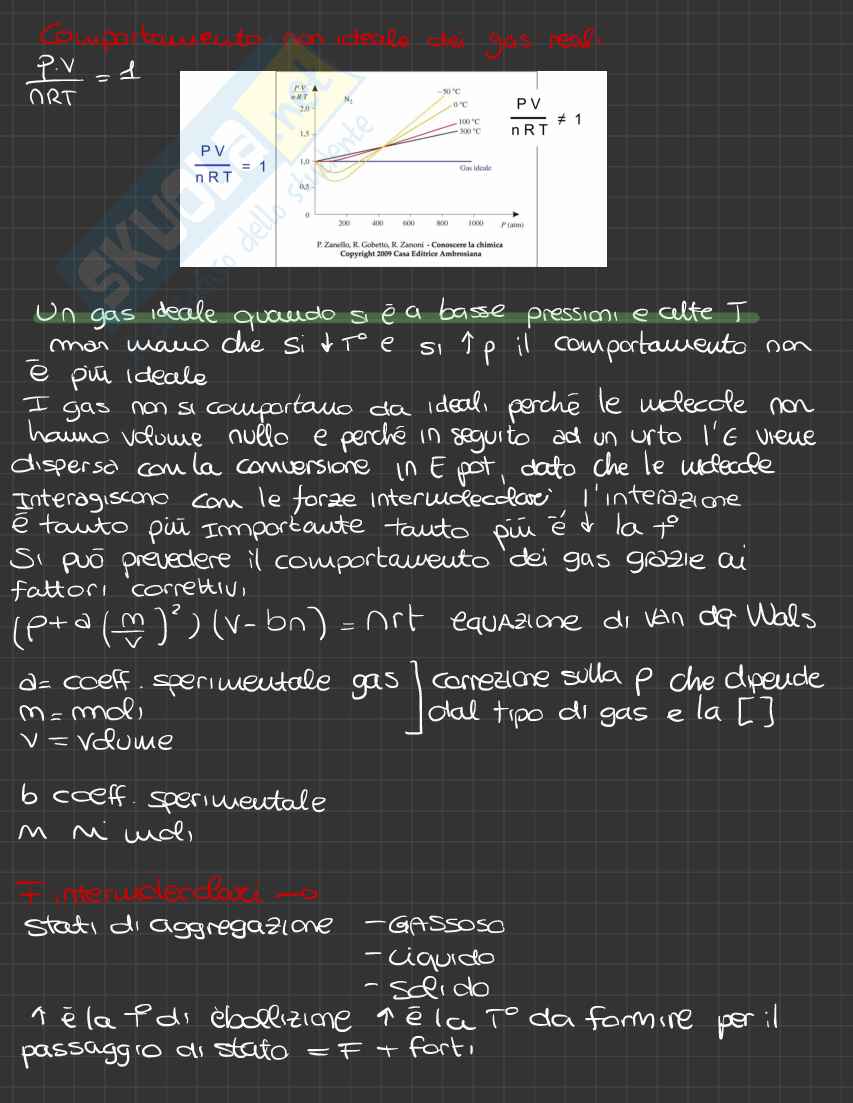 Comportamento non ideale dei gas reali
P.V
nRT
= 1
PV
nRT
= 1
PV
nRT
2,0
1,5
1,0
0,5
0
N2
-50 °C
0 °C
100 °C
300 °C
Gas ideale
200 400 600 800 1000 P (atm)
PV
nRT
≠ 1
P. Zanello, R. Gobetto, R. Zanoni - Conoscere la chimica
Copyright 2009 Casa Editrice Ambrosiana
SKUOLA.net
dello studente
Un gas ideale quando si è a basse pressioni e alte T
man mano che si ↓ T° e si ↑ p il comportamento non
è più ideale
I gas non si comportano da ideali perché le molecole non
hanno volume nullo e perché in seguito ad un urto l'E viene
dispersa con la conversione in E pot, dato che le molecole
interagiscono con le forze intermolecolari l'interazione
è tanto più importante tanto più è ↓ la t°
Si può prevedere il comportamento dei gas grazie ai
fattori correttivi
(p+a(n/v)²)(v-bn) = nrt equazione di Van der Wals
a= coeff. sperimentale gas ] correzione sulla p che dipende
n= moli dal tipo di gas e la []
v = volume
b coeff. sperimentale
n n° moli
F intermolecolari →
stati di aggregazione - GASSOSO
- Liquido
- Solido
↑ è la t° di ebollizione ↑ è la T° da fornire per il
passaggio di stato = F + forti